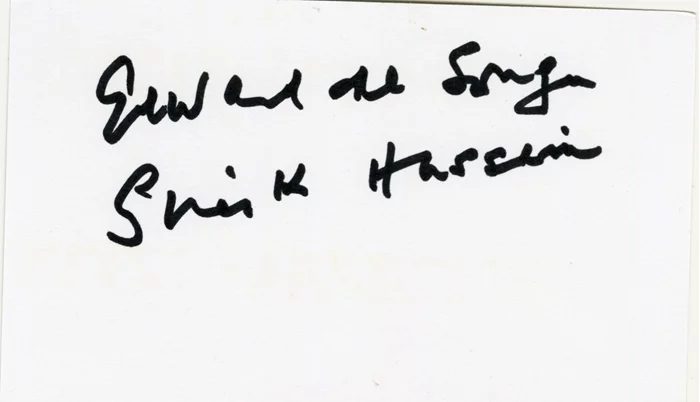 Edward de Souza
Sheik Hassein